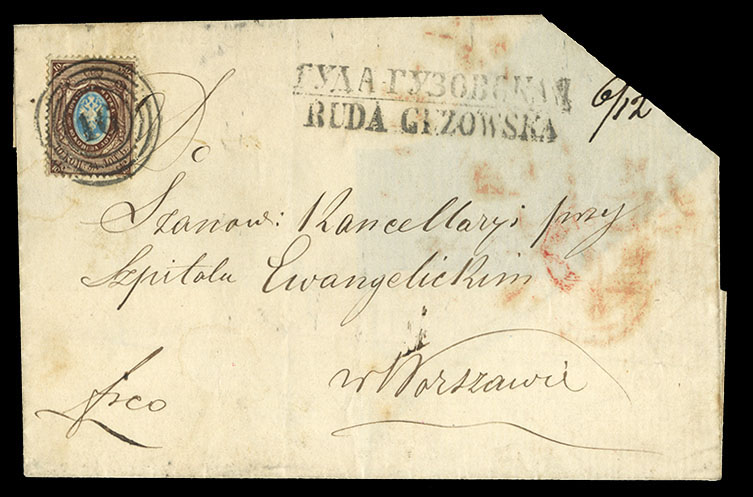 РУДА-ГУЗОВСКАЯ
RUDA GUZOWSKA
6/12
Do
Szanow: Kancellaryi przy
Szpitalu Ewangelickim
w Warszawie
frco